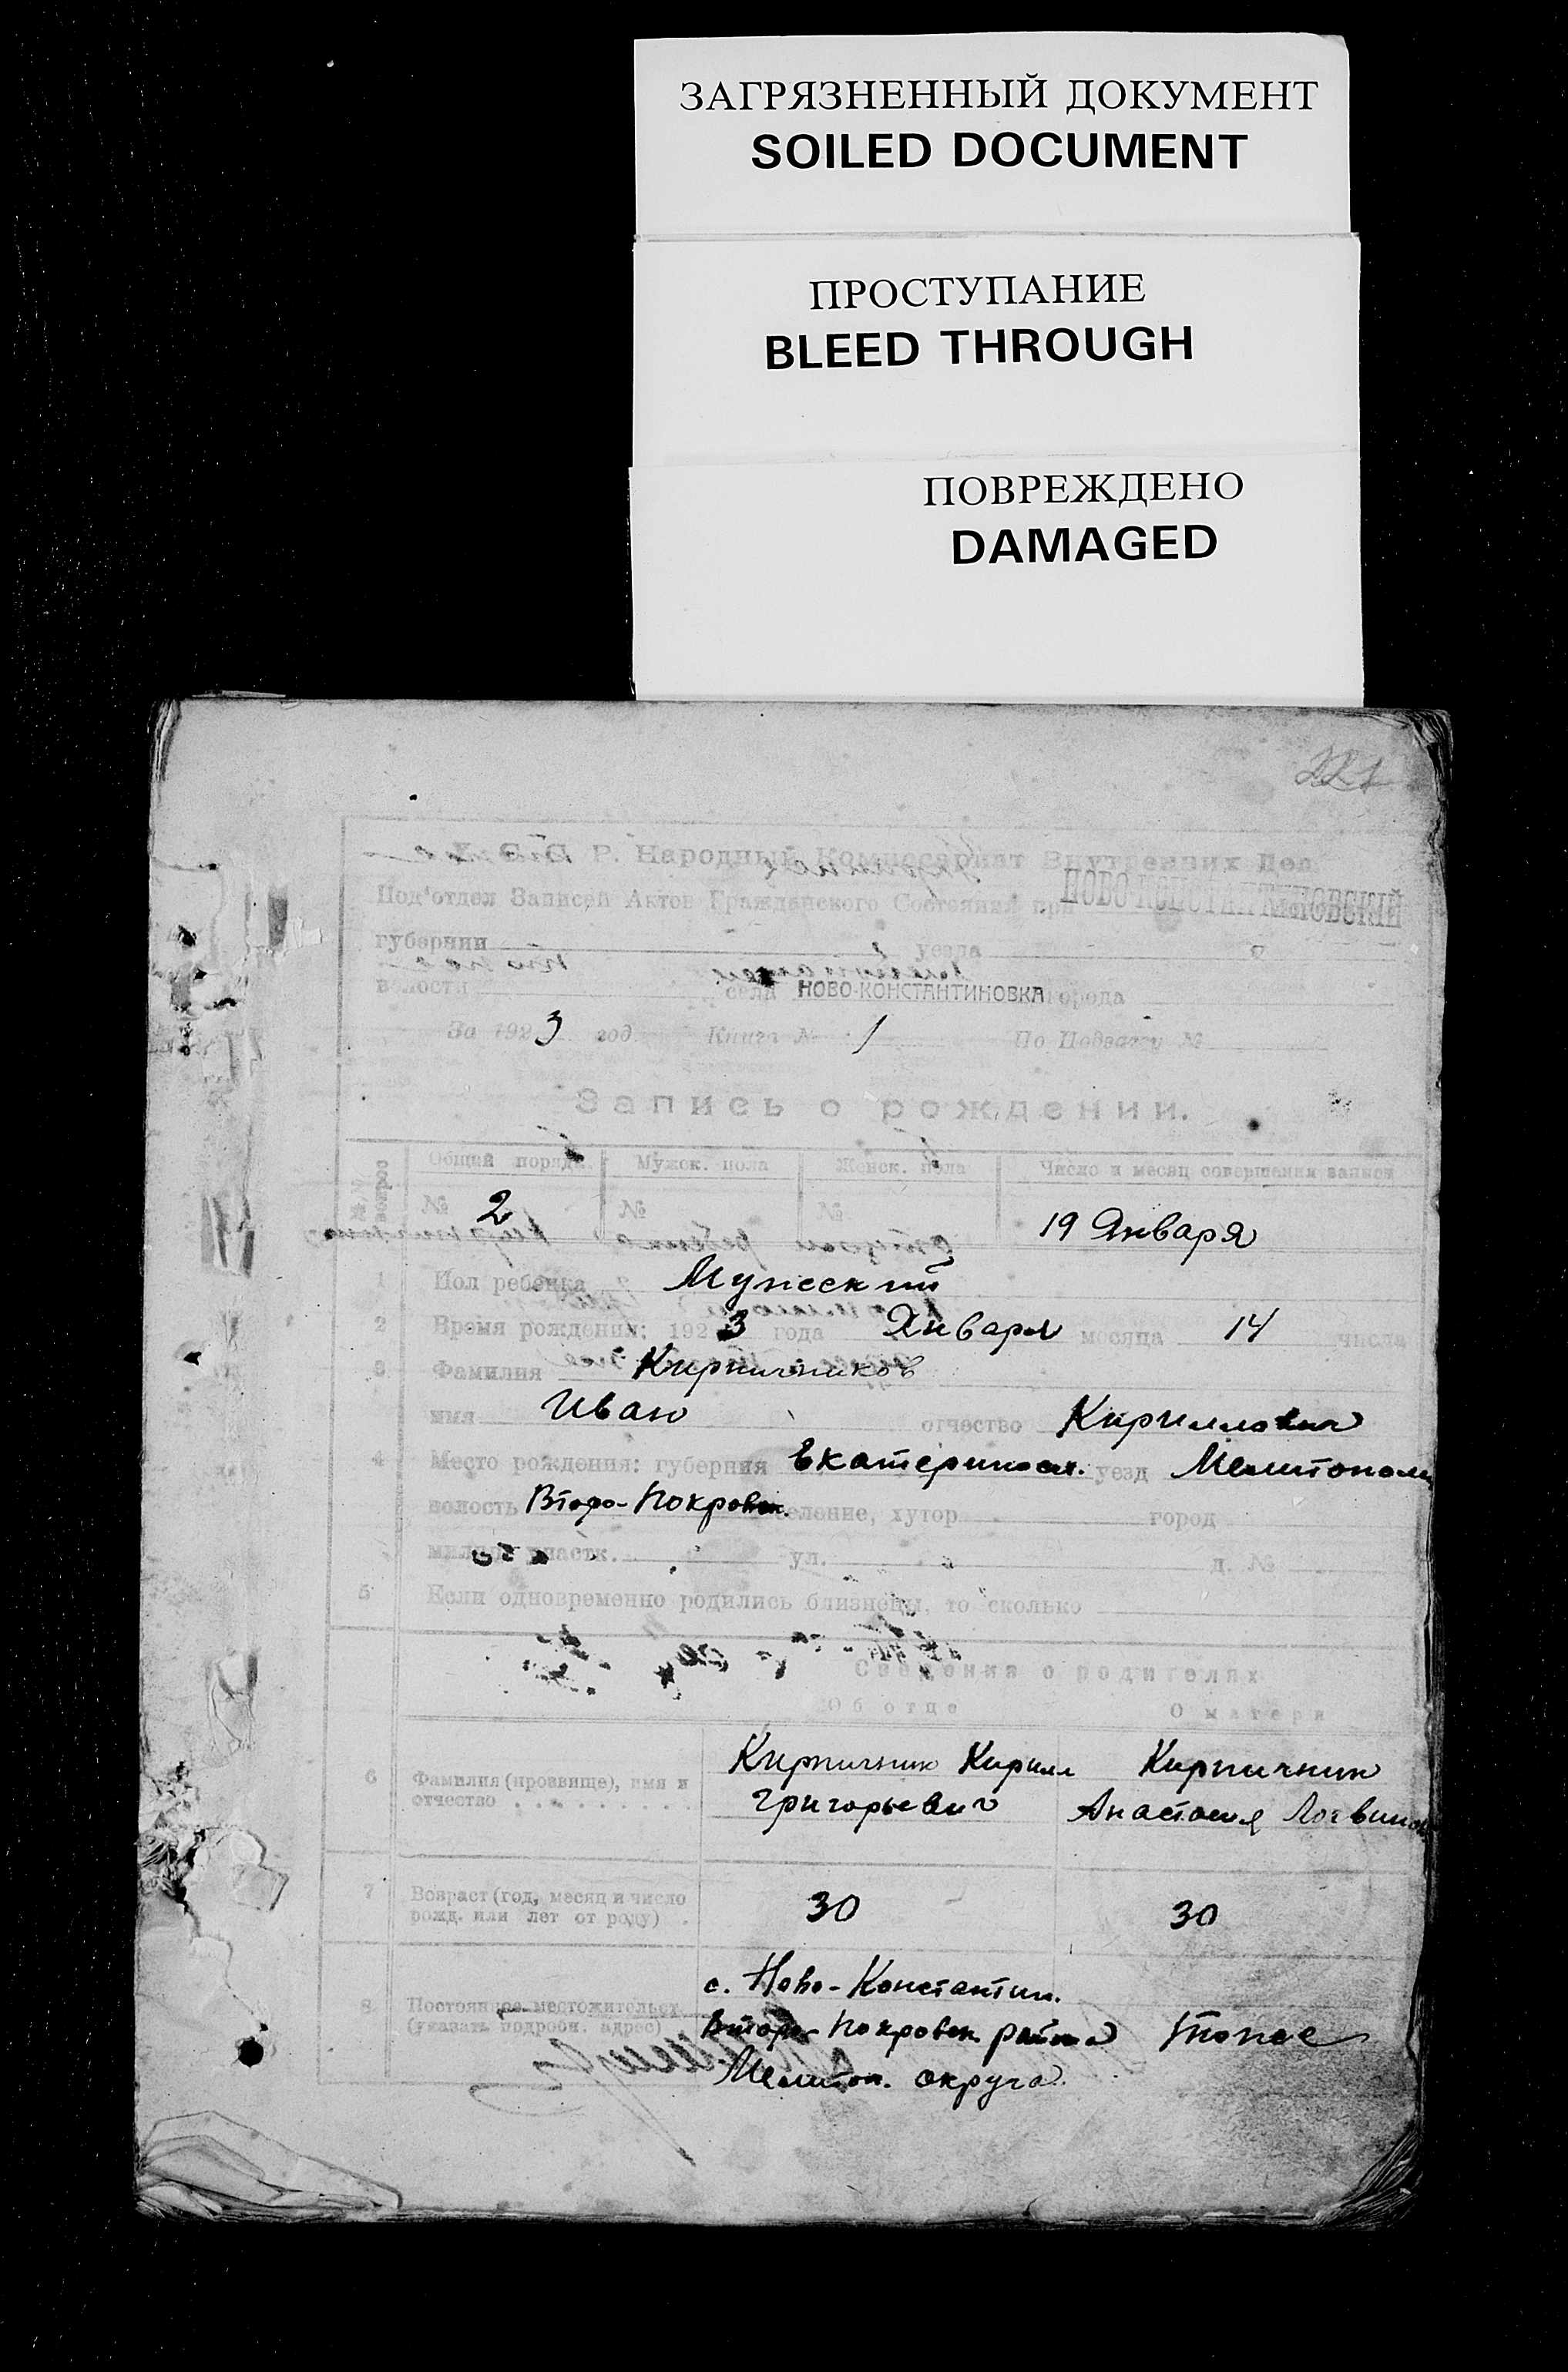 ЗАГРЯЗНЕННЫЙ ДОКУМЕНТ
SOILED DOCUMENT
ПРОСТУПАНИЕ
BLEED THROUGH
ПОВРЕЖДЕНО
DAMAGED
221
Р. Народный Комиссариат Внутренних Дел
Под'отдел Записей Актов Гражданского Состояния при НОВО-КОНСТАНТИНОВСКИЙ
губернии уезда
волости села НОВО-КОНСТАНТИНОВКА города
За 1923 год. Книга № 1 По Подвагу №
Запись о рождении.
Общий порядк. Мужск. пола Женск. пола Число и месяц совершения записи
№ 2 № № 19 Января
1 Пол ребенка Мужеский
2 Время рождения: 1923 года Января месяца 14 числа
3 Фамилия Кирпичников
имя Иван отчество Кириллович
4 Место рождения: губерния Екатериносл. уезд Мелитополь
волость Второ-Покровск. селение, хутор город
участк. ул. д. №
5 Если одновременно родились близнецы, то сколько
Сведения о родителях
Об отце О матери
6 Фамилия (прозвище), имя и отчество Кирпичник Кирилл Кирпичник
Григорьевич Анастасия Логвинов
7 Возраст (год, месяц и число рожд. или лет от роду) 30 30
с. Ново-Константин.
8 Постоянное местожительст. (указать подробн. адрес) Второ-Покровск. района Тоже
Мелитоп. округа